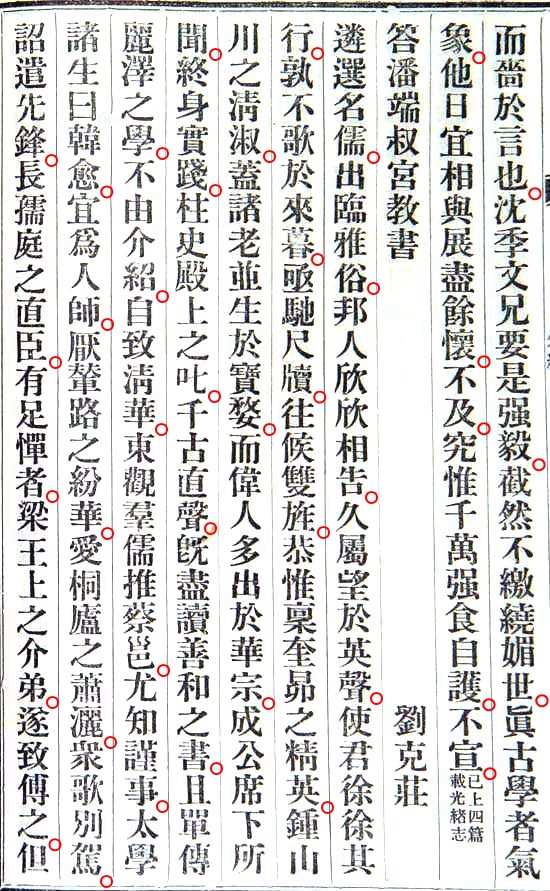 而嗇於言也沈季文兄要是强毅截然不繳繞媚世眞古學者氣
象他日宜相與展盡餘懷不及究惟千萬强食自護不宣已上四篇載光緒志
答潘端叔宮教書
劉克莊
遴選名儒出臨雅俗邦人欣欣相告久屬望於英聲使君徐徐其
行孰不歌於來暮亟馳尺牘往候雙旌恭惟稟奎昴之精英鍾山
川之淸淑蓋諸老並生於寶婺而偉人多出於華宗成公席下所
聞終身實踐柱史殿上之叱千古直聲旣盡讀善和之書且單傳
麗澤之學不由介紹自致淸華東觀羣儒推蔡邕尤知謹事太學
諸生曰韓愈宜爲人師厭輦路之紛華愛桐廬之蕭灑衆歌別駕
詔遣先鋒長孺庭之直臣有足憚者梁王上之介弟遂致傅之但